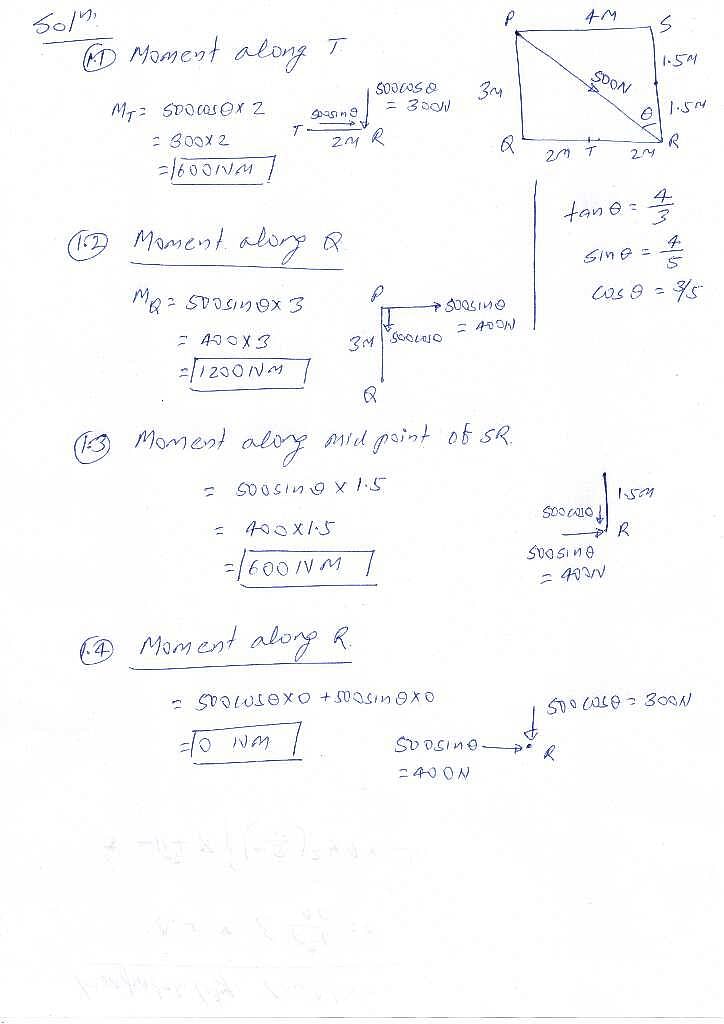 Soln.
1.1 Moment along T
M_T = 500cosθ × 2
= 300×2
= 600 NM
500sinθ
500cosθ
= 300N
T
2M
R
P
4M
S
1.5M
500N
3M
θ
1.5M
Q
2M
T
2M
R
tanθ = 4/3
sinθ = 4/5
cosθ = 3/5
1.2 Moment along Q
M_Q = 500sinθ × 3
= 400×3
= 1200 NM
P
500sinθ
= 400N
500cosθ
3M
Q
1.3 Moment along mid point of SR.
= 500sinθ × 1.5
= 400×1.5
= 600 NM
1.5M
500cosθ
R
500sinθ
= 400N
1.4 Moment along R.
= 500cosθ×0 + 500sinθ×0
= 0 NM
500cosθ = 300N
500sinθ
= 400N
R